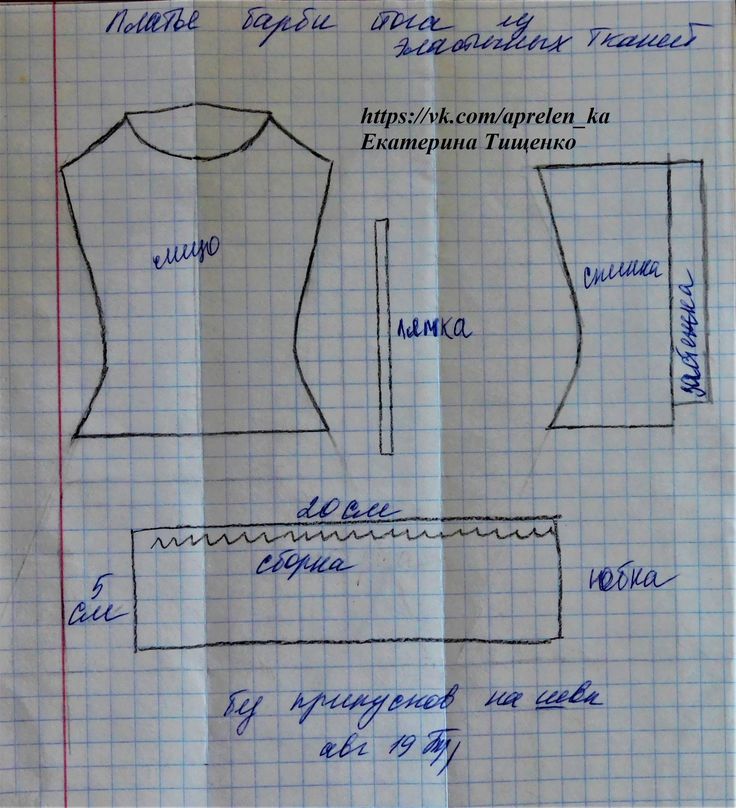 Платье барби йога из
эластичных тканей
https://vk.com/aprelen_ka
Екатерина Тищенко
лицо
лямка
спинка
застежка
20 см
сборка
5
см
юбка
без припусков на швы
авг 19